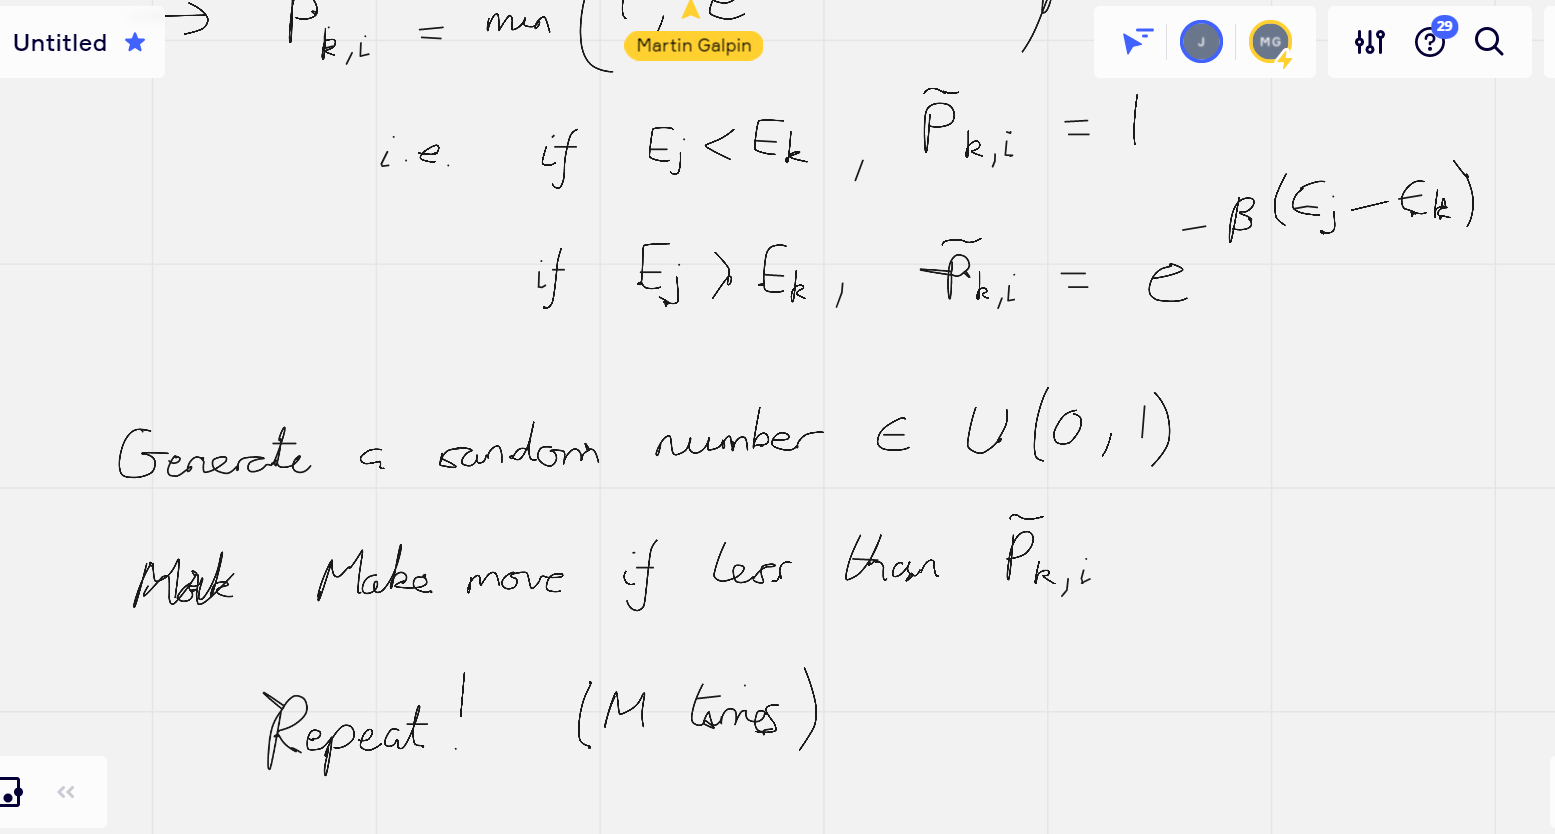 → P̃k,i = min(1, e )
Untitled
Martin Galpin
J
MG
29
i.e. if Ej < Ek , P̃k,i = 1
if Ej > Ek , P̃k,i = e^-β(Ej - Ek)
Generate a random number ∈ U(0,1)
Make move if less than P̃k,i
Repeat! (M times)